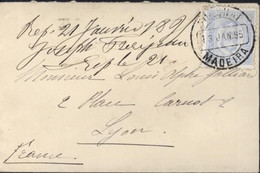 Rep. 21 Janvier
Joseph
Rep le 21
FUNCHAL
13 JAN. 95
MADEIRA
Monsieur Louis
2 Place Carnot 2
Lyon
France